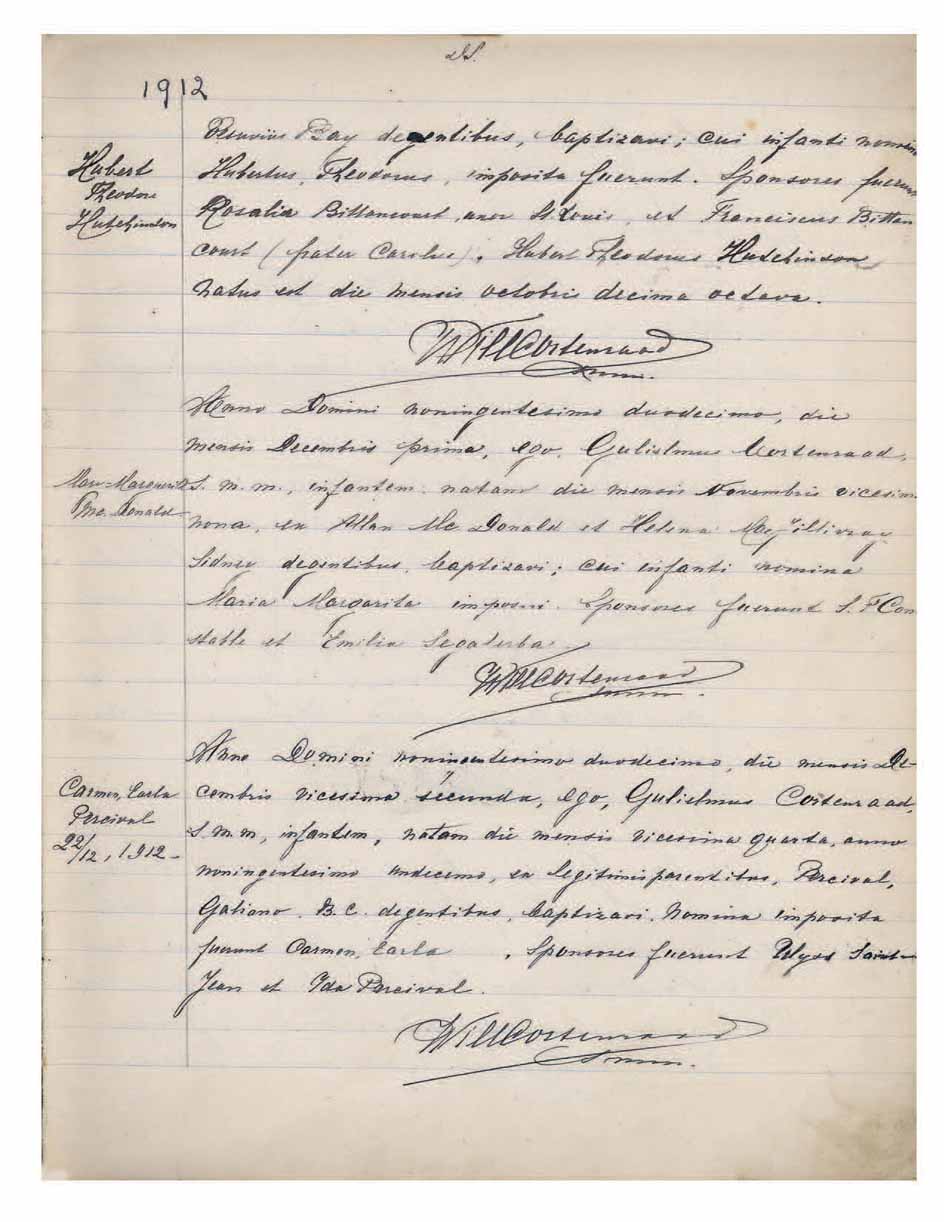 1912
Hubert
Theodore
Hutchinson
Vesuvius Bay degentibus, baptizavi; cui infanti nomina
Hubertus, Theodorus, imposita fuerunt. Sponsores fuerunt
Rosalia Bittencourt, uxor St. Louis, et Franciscus Bitten
court (frater Carolus). Hubert Theodorus Hutchinson
natus est die mensis octobris decima octava.
Will Cortenraad
s.m.m.
Mary Marguerite
Mc. Donald
Anno Domini noningentesimo duodecimo, die
mensis Decembris prima, ego, Gulielmus Cortenraad,
S. m. m., infantem natam die mensis Novembris vicesima
nona, ex Allan Mc Donald et Helena MacGillivray
Sidney degentibus, baptizavi; cui infanti nomina
Maria Margarita imposui. Sponsores fuerunt S. F Con
stable et Emilia Segalerba
Will Cortenraad
s.m.m.
Carmen, Carla
Percival
22/12, 1912-
Anno Domini noningentesimo duodecimo, die mensis De-
cembris vicesima secunda, ego, Gulielmus Cortenraad,
S.m.m, infantem, natam die mensis vicesima quarta, anno
noningentesimo undecimo, ex legitimis parentibus, Percival,
Galiano, B.C. degentibus, baptizavi. Nomina imposita
fuerunt Carmen, Carla, Sponsores fuerunt Ulyss Saint-
Jean et Ida Percival.
Will Cortenraad
s.m.m.